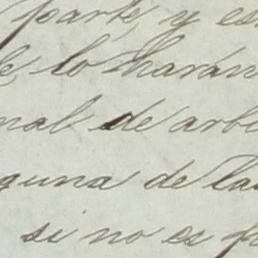 parte, y es
lo harán
nal de arbi
guna de la
si no es f